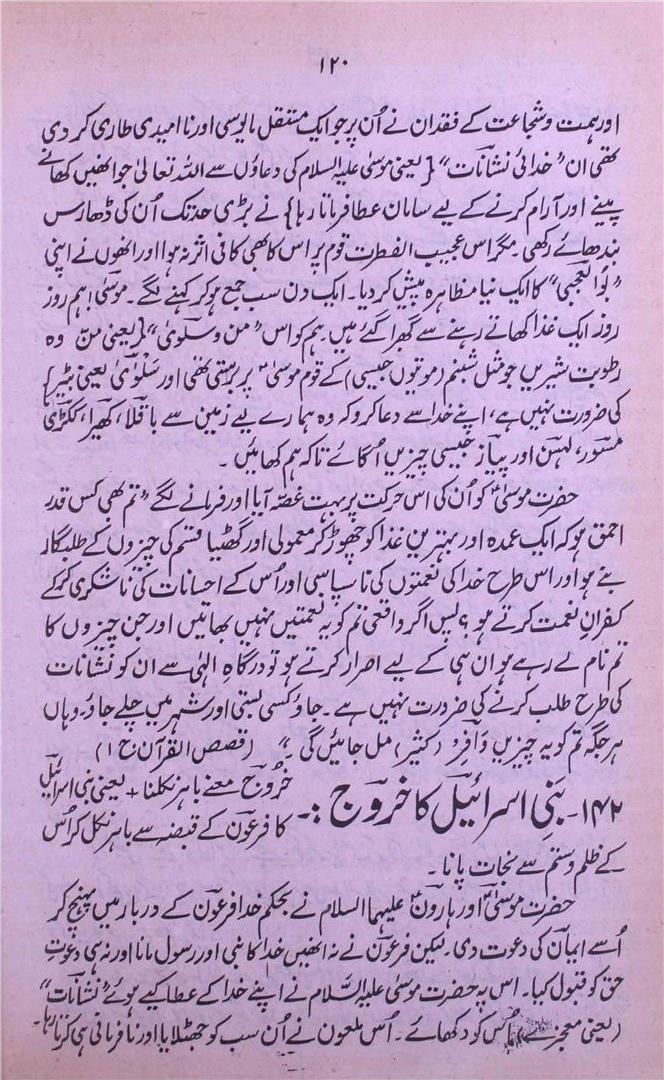 ۱۲۰
اور ہمت و شجاعت کے فقدان نے اُن پر جو ایک مستقل مایوسی اور نا امیدی طاری کر دی
تھی ان "خدائی نشانات" {یعنی موسیٰ علیہ السلام کی دعاؤں سے اللہ تعالیٰ جو انھیں کھانے
پینے اور آرام کرنے کے لیے سامان عطا فرماتا رہا} نے بڑی حد تک اُن کی ڈھارس
بندھائے رکھی۔ مگر اس عجیب الفطرت قوم پر اس کا بھی کافی اثر نہ ہوا اور انھوں نے اپنی
"بُو العجبی" کا ایک نیا مظاہرہ پیش کر دیا۔ ایک دن سب جمع ہو کر کہنے لگے۔ موسیٰ! ہم روز
روز ایک غذا کھاتے رہنے سے گھبرا گئے ہیں۔ ہم کو اس "من و سلویٰ" {یعنی من وہ
رطوبت شیریں جو مثل شبنم (موتیوں جیسی) کے قوم موسیٰؑ پر برستی تھی اور سَلْویٰ یعنی بٹیر}
کی ضرورت نہیں ہے، اپنے خدا سے دعا کرو کہ وہ ہمارے لیے زمین سے باقلا، کھیرا، ککڑی
مسور، لہسن اور پیاز جیسی چیزیں اُگائے تاکہ ہم کھائیں۔
حضرت موسیٰؑ کو اُن کی اس حرکت پر بہت غصّہ آیا اور فرمانے لگے "تم بھی کس قدر
احمق ہو کہ ایک عمدہ اور بہترین غذا کو چھوڑ کر معمولی اور گھٹیا قسم کی چیزوں کے طلبگار
بنے ہو اور اس طرح خدا کی نعمتوں کی ناسپاسی اور اُس کے احسانات کی ناشکری کرکے
کفرانِ نعمت کرتے ہو؟ پس اگر واقعی تم کو یہ نعمتیں نہیں بھاتیں اور جن چیزوں کا
تم نام لے رہے ہو ان ہی کے لیے اصرار کرتے ہو تو درگاہِ الٰہی سے ان کو نشانات
کی طرح طلب کرنے کی ضرورت نہیں ہے۔ جاؤ کسی بستی اور شہر میں چلے جاؤ۔ وہاں
ہر جگہ تم کو یہ چیزیں وَافِر (کثیر) مل جائیں گی۔" (قصص القرآن ج ۱)
۱۴۲۔ بَنیِ اسرائیل کا خروج :۔ خُروج معنے باہر نکلنا + یعنی بنی اسرائیل
کا فرعون کے قبضہ سے باہر نکل کر اُس
کے ظلم و ستم سے نجات پانا۔
حضرت موسیٰؑ اور ہارونؑ علیہما السلام نے بحکم خدا فرعون کے دربار میں پہنچ کر
اُسے ایمان کی دعوت دی۔ لیکن فرعون نے نہ انھیں خدا کا نبی اور رسول مانا اور نہ ہی دعوتِ
حق کو قبول کیا۔ اس پر حضرت موسیٰ علیہ السَّلام نے اپنے خدا کے عطا کیے ہوئے "نشانات"
(یعنی معجزے) اُس کو دکھائے۔ اُس ملعون نے اُن سب کو جھٹلایا اور نافرمانی ہی کرتا رہا۔